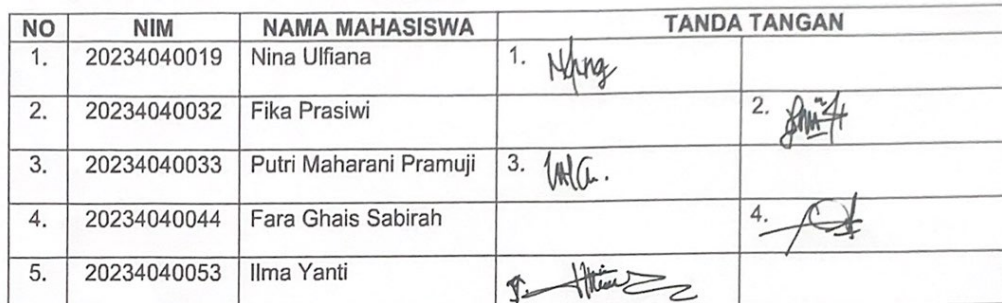 NO NIM NAMA MAHASISWA TANDA TANGAN
1. 20234040019 Nina Ulfiana 1.
2. 20234040032 Fika Prasiwi 2.
3. 20234040033 Putri Maharani Pramuji 3.
4. 20234040044 Fara Ghais Sabirah 4.
5. 20234040053 Ilma Yanti